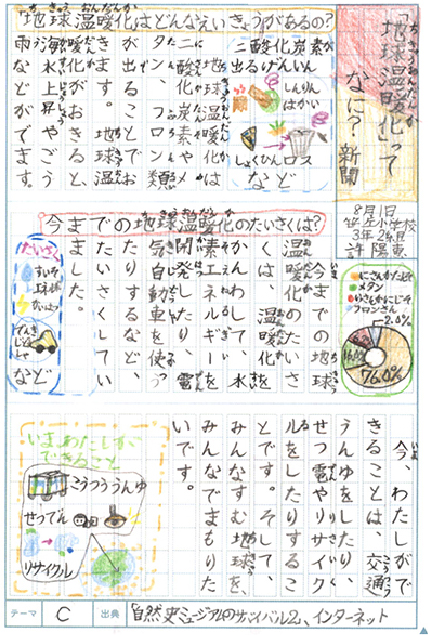 「地球温暖化」って
なに?新聞
8月1日
3年2組
許陽東
地球温暖化はどんなえいきょうがあるの?
地球温暖化は
二酸化炭素やメ
タン、フロン類
が出ることでお
きます。地球温
暖化がおきると、
海水上昇やごう
雨などがでます。
二酸化炭素が
出るげんいん
しんりん
はかい
しょくひんロス
など
今までの地球温暖化のたいさくは?
今までの地球
温暖化のたいさ
くは、温暖化を
かんがえて、水
素エネルギーを
開発したり、電
気自動車を使っ
たりするなど、
たいさくしてい
ました。
たいさく
すいそ
でんき
じどうしゃ
など
にさんかたんそ
メタン
フロンるい
2.0%
76.0%
今、わたしがで
きることは、交通
うんゆをしたり、
せつ電やリサイク
ルをしたりするこ
とです。そして、
みんなすむ地球を、
みんなでまもりた
いです。
いまわたしが
できること
こうつううんゆ
せつでん
リサイクル
テーマ
C
出典
「自然史ミュージアムのサバイバル2」、インターネット